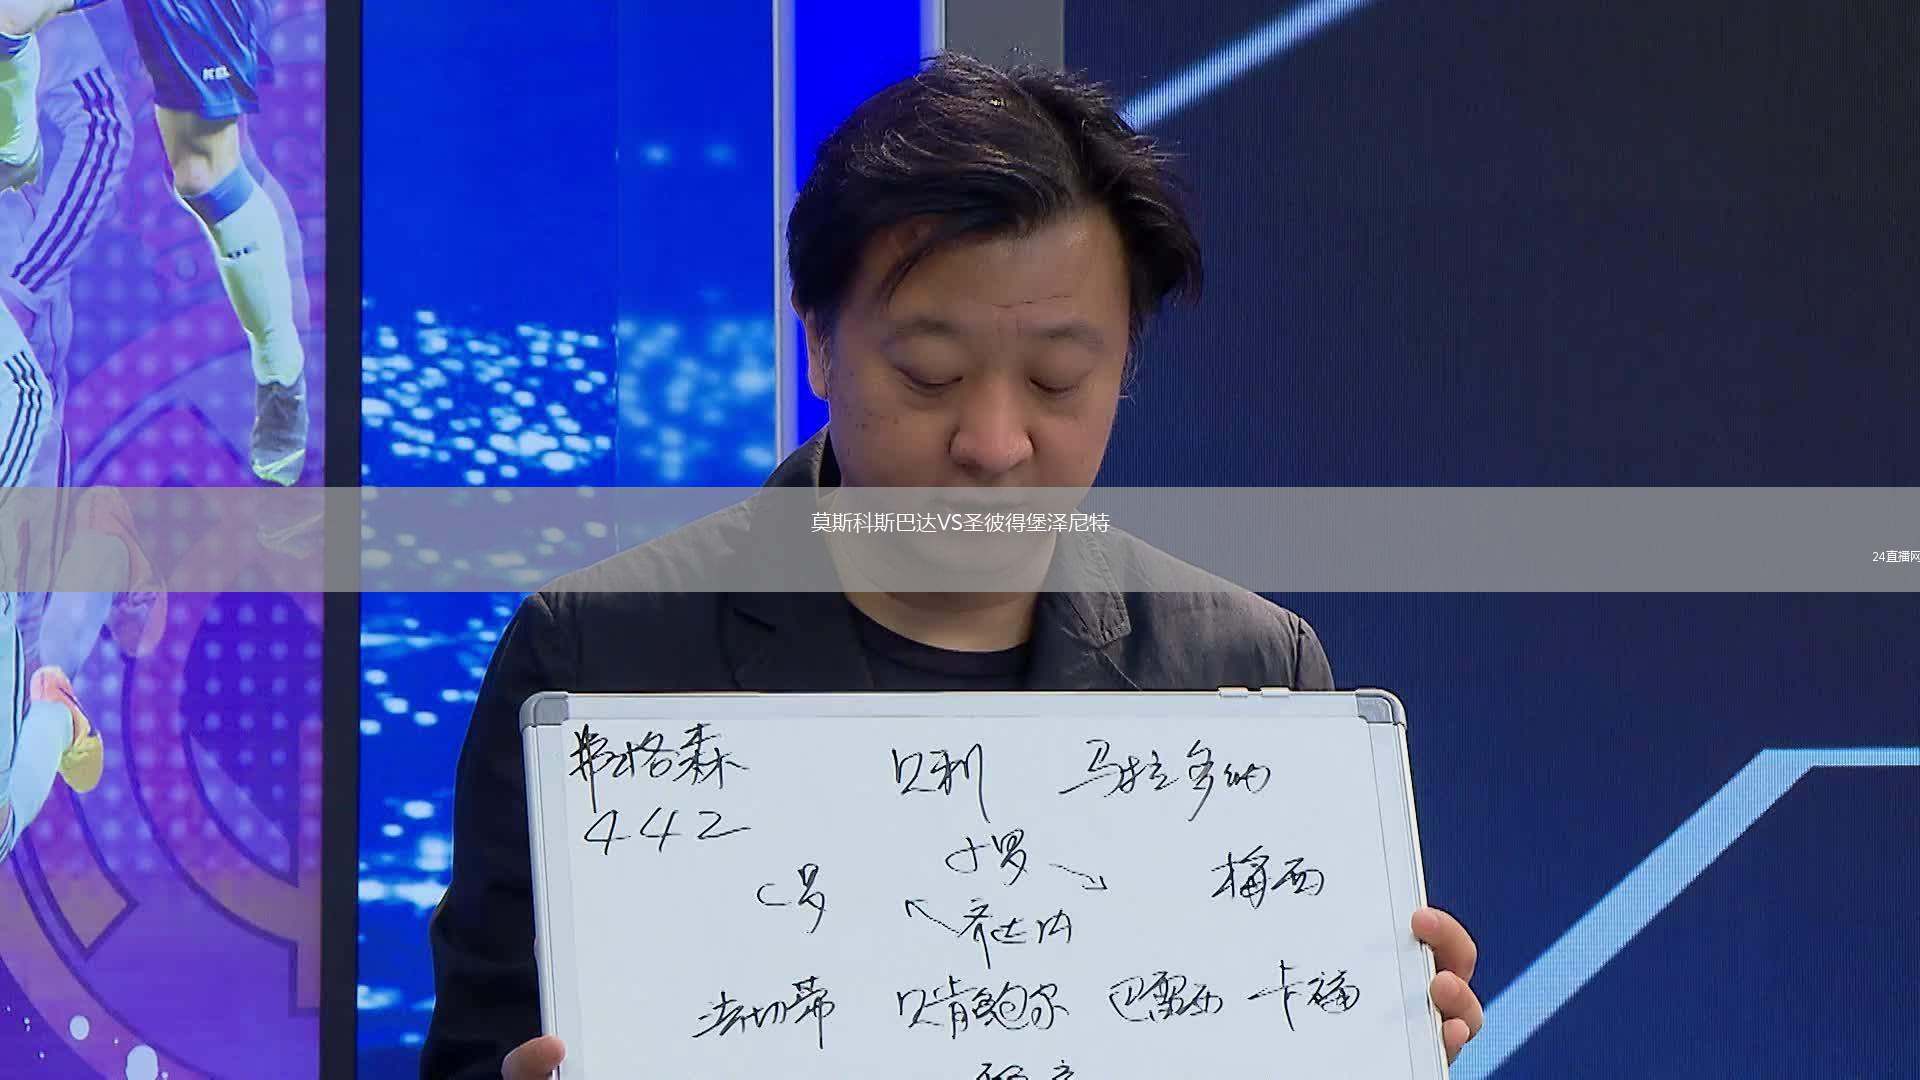 莫斯科斯巴达VS圣彼得堡泽尼特
24直播网
弗格森 贝利 马拉多纳
442
小罗
C罗 梅西
齐达内
法切蒂 贝肯鲍尔 巴雷西 卡福